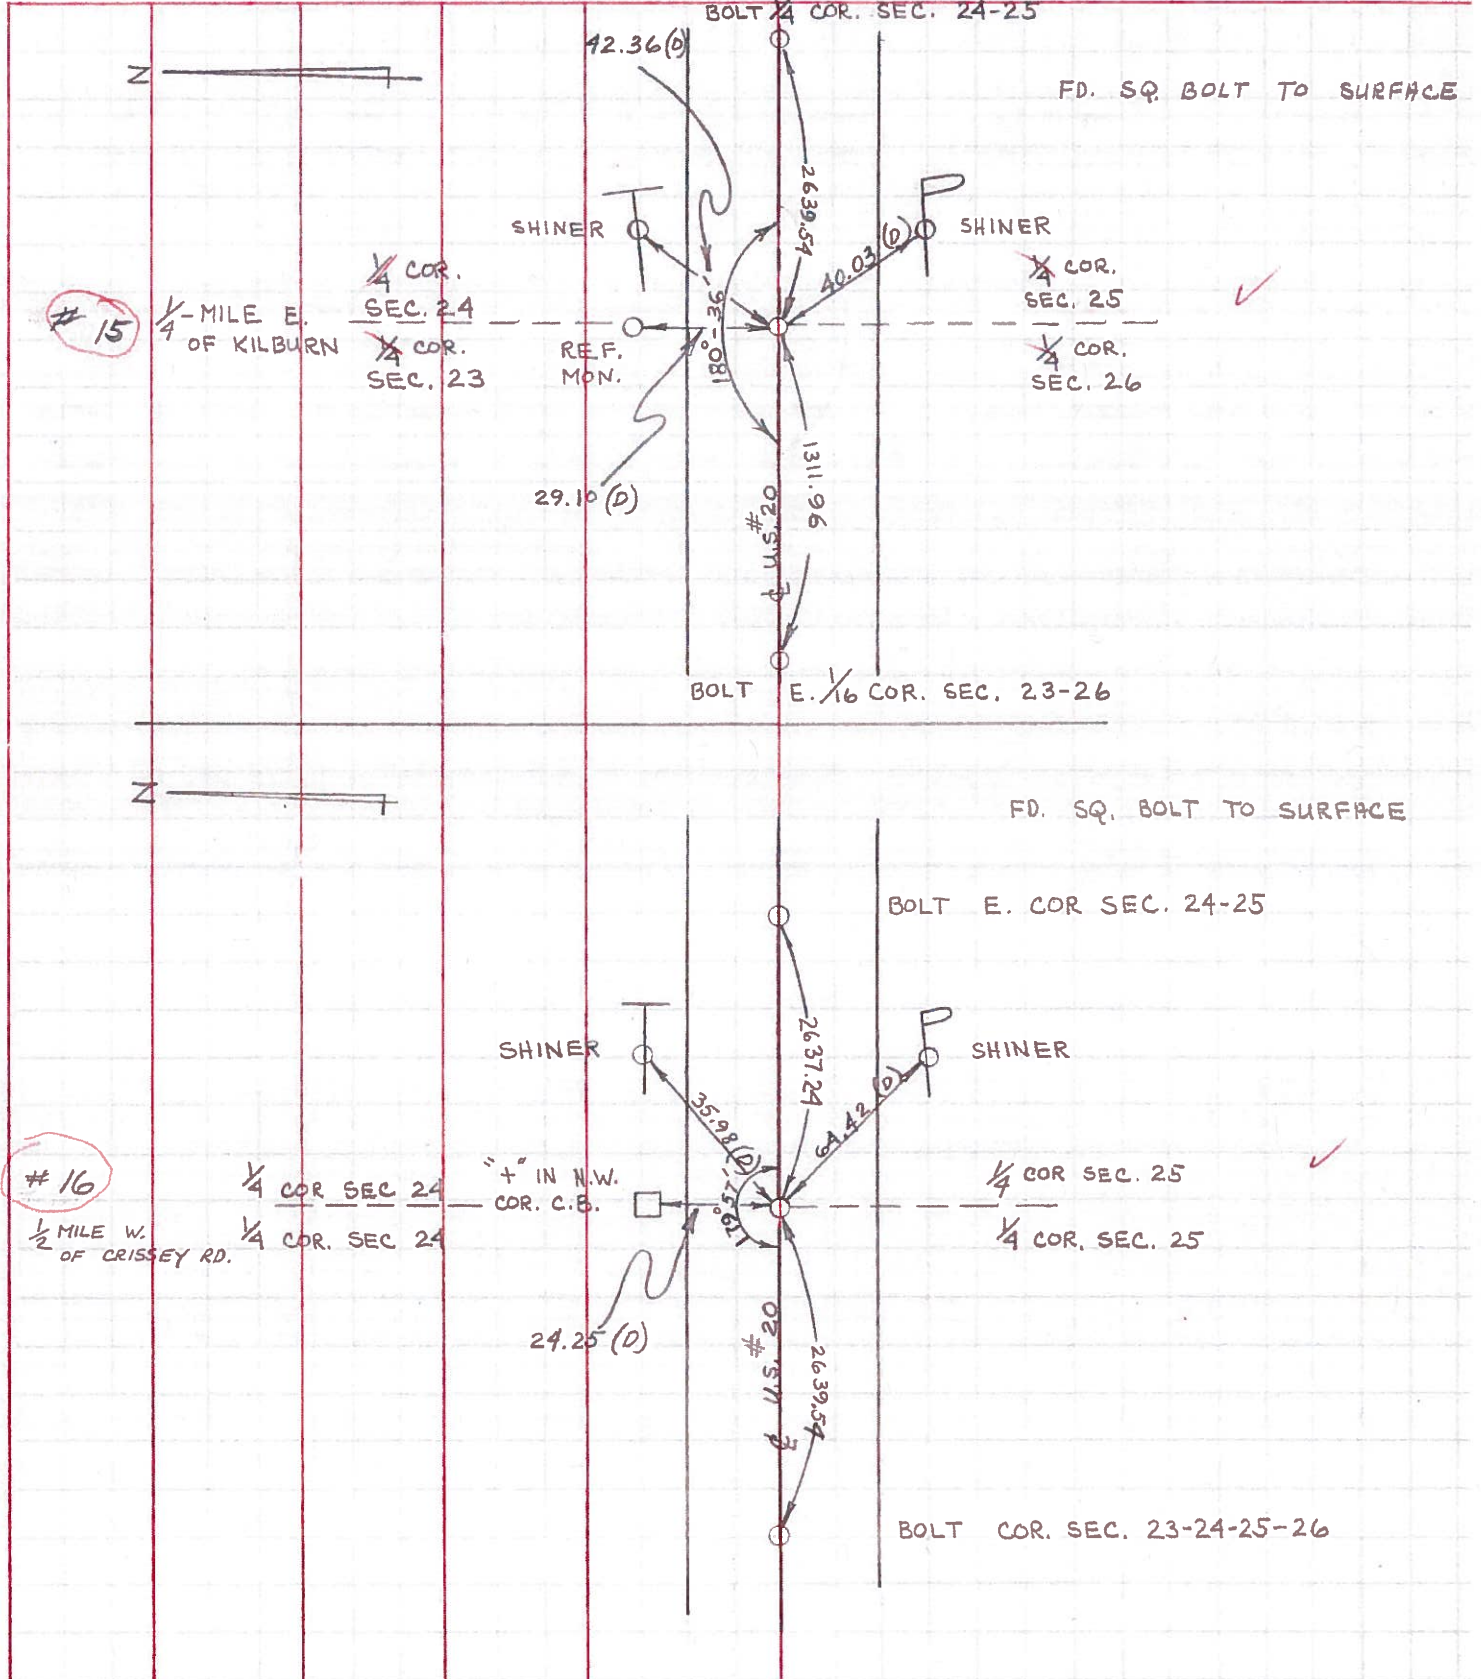 BOLT 1/4 COR. SEC. 24-25
42.36 (D)
Z
FD. SQ. BOLT TO SURFACE
SHINER
2639.54
40.03 (D)
SHINER
1/4 COR.
SEC. 24
1/4 COR.
SEC. 25
# 15
1/4-MILE E.
OF KILBURN
1/4 COR.
SEC. 23
REF.
MON.
180°-36'
1/4 COR.
SEC. 26
29.10 (D)
1311.96
℄ U.S. #20
BOLT E. 1/16 COR. SEC. 23-26
Z
FD. SQ. BOLT TO SURFACE
BOLT E. COR SEC. 24-25
SHINER
2637.24
SHINER
35.98 (D)
64.42 (D)
# 16
1/2 MILE W.
OF CRISSEY RD.
1/4 COR SEC 24
1/4 COR. SEC 24
"+" IN N.W.
COR. C.B.
179°57'
1/4 COR SEC. 25
1/4 COR. SEC. 25
24.25 (D)
℄ U.S. #20
2639.54
BOLT COR. SEC. 23-24-25-26